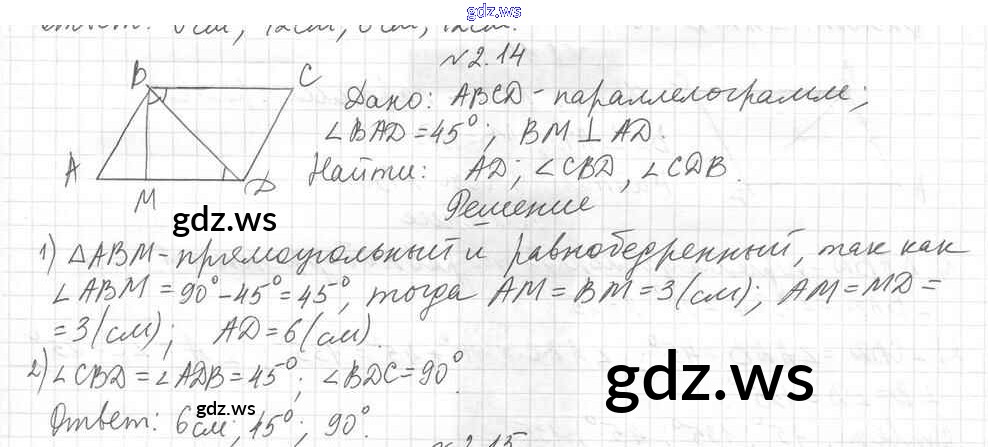 gdz.ws
Ответ: 6 см, 12 см, 6 см, 12 см.
№2.14
B C
Дано: ABCD - параллелограмм;
∠BAD = 45°; BM ⊥ AD.
A D
M
Найти: AD; ∠CBD, ∠CDB.
gdz.ws
Решение
1) △ABM - прямоугольный и равнобедренный, так как
∠ABM = 90° - 45° = 45°, тогда AM = BM = 3 (см); AM = MD =
= 3 (см); AD = 6 (см).
2) ∠CBD = ∠ADB = 45°; ∠BDC = 90°.
gdz.ws
Ответ: 6 см, 45°, 90°.
gdz.ws
№2.15